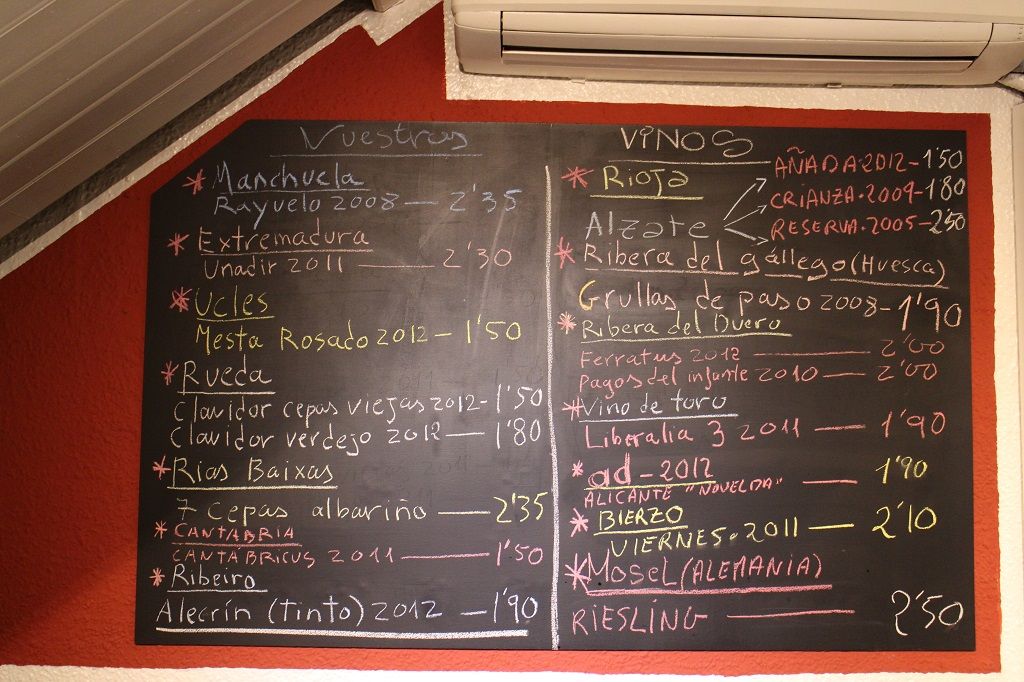 Vuestros
* Manchuela
Rayuelo 2008 — 2'35
* Extremadura
Unadir 2011 — 2'30
* Ucles
Mesta Rosado 2012 — 1'50
* Rueda
Clavidor cepas viejas 2012 - 1'50
Clavidor verdejo 2012 — 1'80
* Rias Baixas
7 cepas albariño — 2'35
* CANTABRIA
CANTÁBRICUS 2011 — 1'50
* Ribeiro
Alecrín (tinto) 2012 — 1'90
VINOS
* Rioja
Alzate
AÑADA 2012 - 1'50
CRIANZA · 2009 - 1'80
RESERVA · 2005 - 2'50
* Ribera del gállego (Huesca)
Grullas de paso 2008 - 1'90
* Ribera del Duero
Ferratus 2012 — 2'00
Pagos del infante 2010 — 2'00
* Vino de toro
Liberalia 3 2011 — 1'90
* ad - 2012 1'90
ALICANTE "NOVELDA" —
* BIERZO
VIERNES · 2011 — 2'10
* MOSEL (ALEMANIA)
RIESLING — 2'50